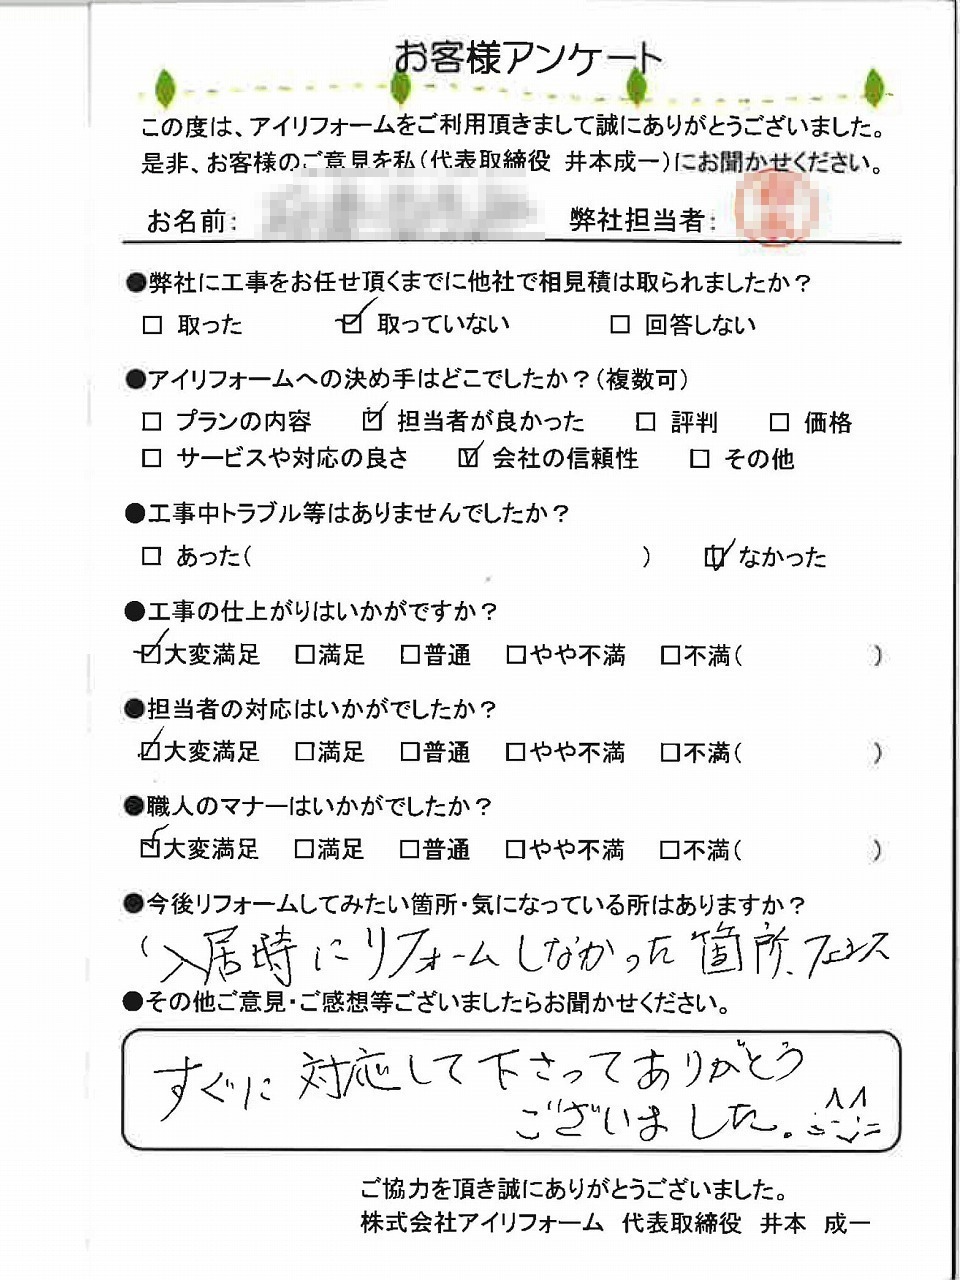 お客様アンケート
この度は、アイリフォームをご利用頂きまして誠にありがとうございました。
是非、お客様のご意見を私(代表取締役 井本成一)にお聞かせください。
お名前: 弊社担当者:
●弊社に工事をお任せ頂くまでに他社で相見積は取られましたか?
□ 取った ☑ 取っていない □ 回答しない
●アイリフォームへの決め手はどこでしたか?(複数可)
□ プランの内容 ☑ 担当者が良かった □ 評判 □ 価格
□ サービスや対応の良さ ☑ 会社の信頼性 □ その他
●工事中トラブル等はありませんでしたか?
□ あった( ) ☑ なかった
●工事の仕上がりはいかがですか?
☑大変満足 □満足 □普通 □やや不満 □不満( )
●担当者の対応はいかがでしたか?
☑大変満足 □満足 □普通 □やや不満 □不満( )
●職人のマナーはいかがでしたか?
☑大変満足 □満足 □普通 □やや不満 □不満( )
●今後リフォームしてみたい箇所・気になっている所はありますか?
入居時にリフォームしなかった箇所、フェンス
●その他ご意見・ご感想等ございましたらお聞かせください。
すぐに対応して下さってありがとう
ございました。
ご協力を頂き誠にありがとうございました。
株式会社アイリフォーム 代表取締役 井本 成一